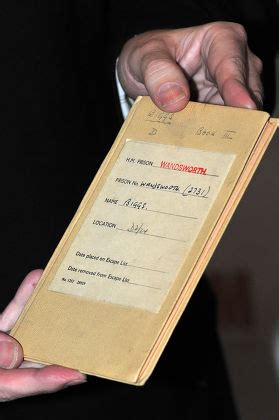 BIGGS
D BOOK III
H.M. PRISON WANDSWORTH
PRISON No. WANDSWORTH (2731)
NAME BIGGS.
LOCATION
Date placed on Escape List
Date removed from Escape List
No.